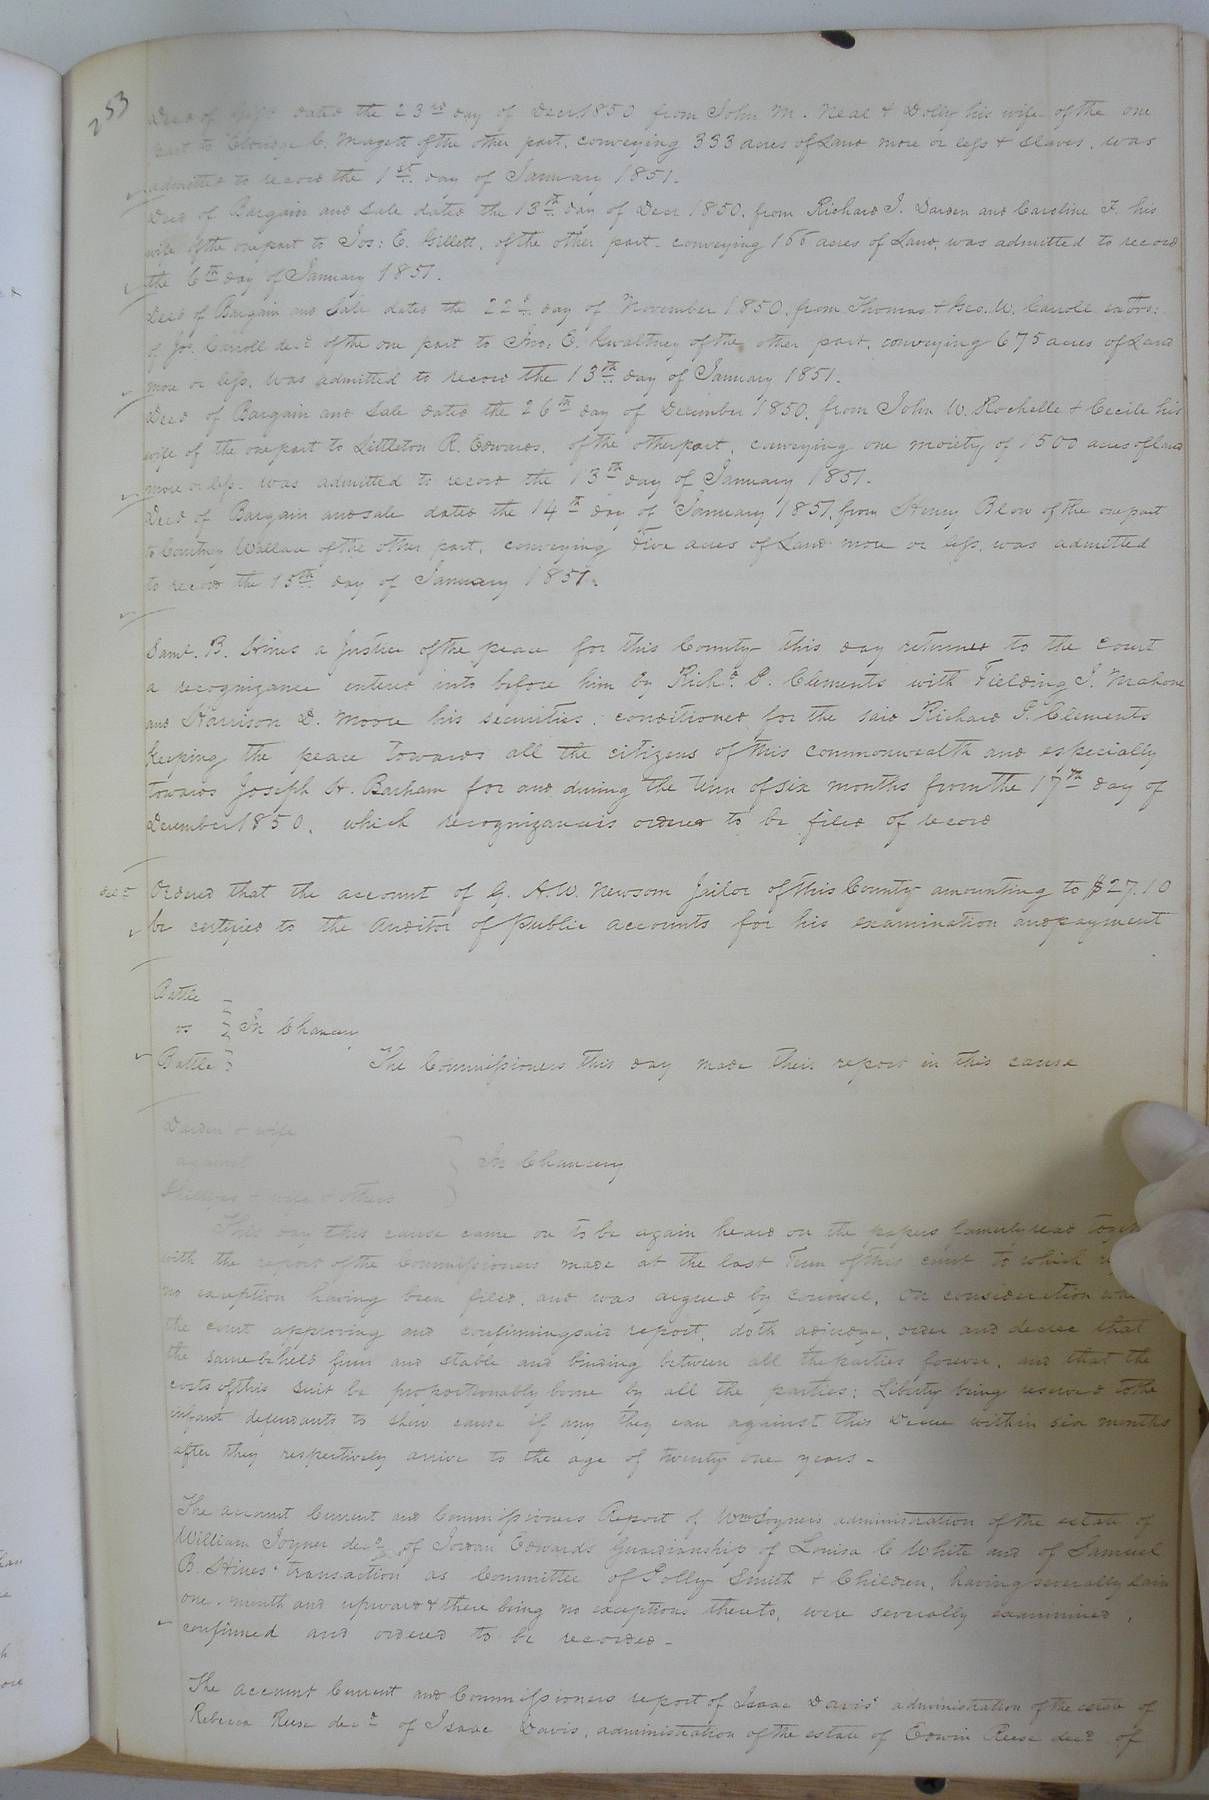 253
Deed of Gift dated the 23rd day of Decr 1850 from John M. Neal & Dolly his wife of the one
part to George C. Magett of the other part, conveying 333 acres of Land more or less & slaves, was
admitted to record the 1st. day of January 1851.
Deed of Bargain and Sale dated the 13th day of Decr 1850, from Richard J. Darden and Caroline F. his
wife of the one part to Jos: E. Gillett, of the other part. conveying 166 acres of Land, was admitted to record
the 6th day of January 1851.
Deed of Bargain and Sale dated the 22d. day of November 1850, from Thomas & Geo. W. Carroll extors:
of Jos. Carroll decd of the one part to Jno: E. Gwaltney of the other part, conveying 675 acres of Land
more or less, was admitted to record the 13th day of January 1851.
Deed of Bargain and Sale dated the 26th day of December 1850, from John W. Rochelle & Cecile his
wife of the one part to Littleton R. Edwards, of the other part, conveying one moiety of 1500 acres of Land
more or less. was admitted to record the 13th day of January 1851.
Deed of Bargain and sale dated the 14th day of January 1851, from Henry Blow of the one part
to Courtney Wallace of the other part, conveying Five acres of Land more or less, was admitted
to record the 15th day of January 1851.
Saml. B. Hines a Justice of the peace for this County this day returned to the Court
a recognizance entered into before him by Richd. P. Clements with Fielding J. Mahone
and Harrison D. Moore his securities, conditioned for the said Richard P. Clements
keeping the peace towards all the citizens of this commonwealth and especially
towards Joseph H. Barham for and during the term of six months from the 17th day of
December 1850, which recognizance is ordered to be filed of record
Ordered that the account of G. A. W. Newsom Jailor of this County amounting to $27.10
be certified to the Auditor of public accounts for his examination and payment
Battle
vs } In Chancery
Battle
The Commissioners this day made their report in this cause
Darden & wife
against } In Chancery
Phillips & wife & others
This day this cause came on to be again heard on the papers formerly read
with the report of the Commissioners made at the last Term of this court to which
no exception having been filed, and was argued by counsel, On consideration
the court approving and confirming said report, doth adjudge, order and decree that
the same be held firm and stable and binding between all the parties forever, and that the
costs of this suit be proportionably borne by all the parties: Liberty being reserved to the
infant defendants to shew cause if any they can against this Decree within six months
after they respectively arrive to the age of twenty one years.
The account Current and Commissioners Report of Wm Joyners administration of the estate of
William Joyner decd of Jordan Edwards Guardianship of Louisa C White and of Samuel
B. Hines' transaction as Committee of Polly Smith & Children, having severally lain
one month and upward & there being no exceptions thereto, were severally examined,
confirmed and ordered to be recorded.
The account Current and Commissioners report of Isaac Davis' administration of the estate of
Rebecca Reese decd of Isaac Davis, administration of the estate of Edwin Reese decd of